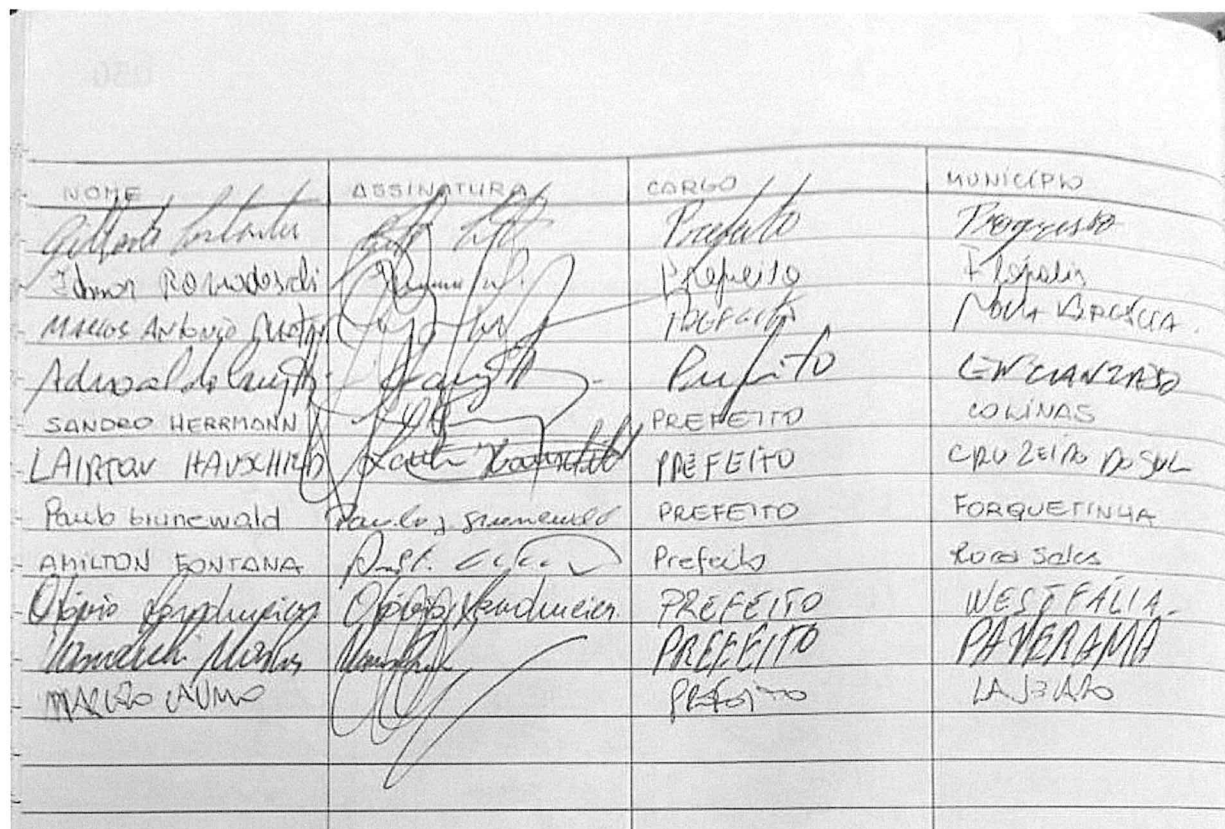 NOME ASSINATURA CARGO MUNICÍPIO
Gilberto Prefeito Progresso
Edmor Prefeito Ilópolis
Marcos Antonio Prefeito Nova Bréscia.
Adroaldo Prefeito
SANDRO HERRMANN PREFEITO COLINAS
LAIRTON HAUSCHILD PREFEITO CRUZEIRO DO SUL
Paulo Grunewald Paulo J. Grunewald PREFEITO FORQUETINHA
AMILTON FONTANA Prefeito Roca Sales
Otávio Landmeier Otávio Landmeier PREFEITO WESTFÁLIA
PREFEITO PAVERAMA
MARCELO CAUMO PREFEITO LAJEADO